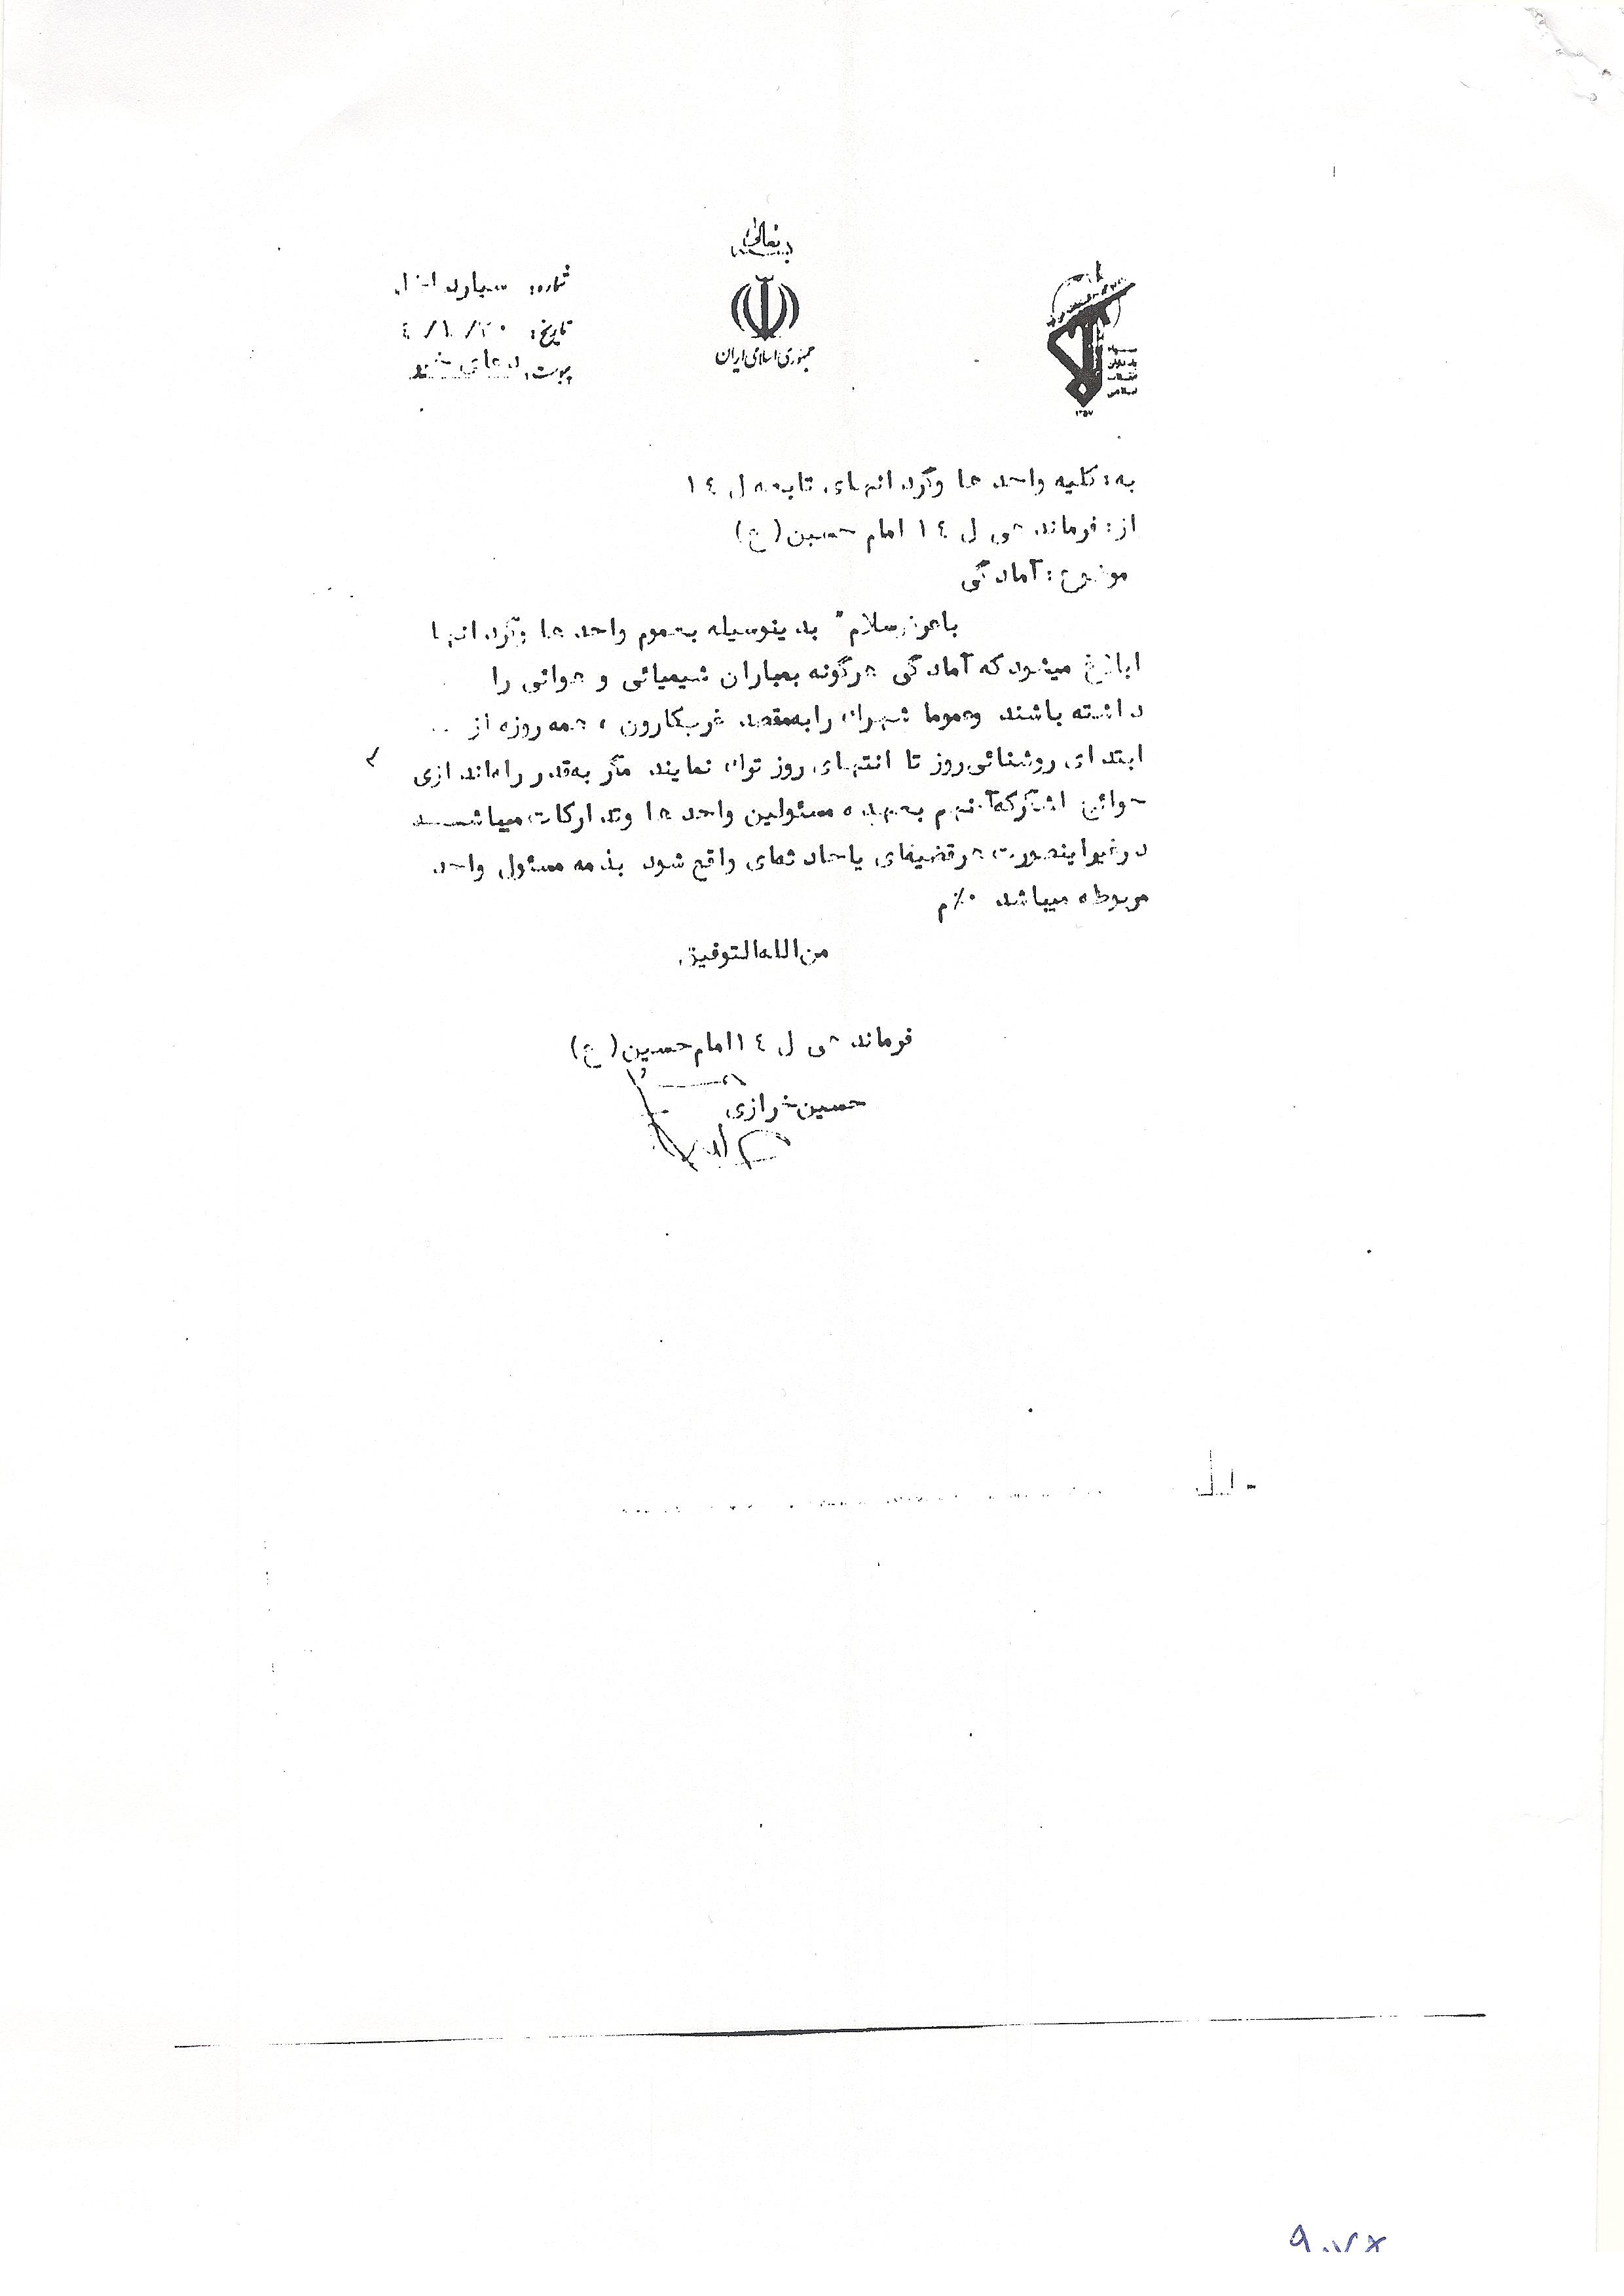 بسمه تعالی
جمهوری اسلامی ایران
شماره:
تاریخ:
پیوست:
۱۳۵۷
به: کلیه واحد ها وگرد انهای تابعه ل ١٤
از: فرماند هی ل ١٤ امام حسین (ع)
موضوع: آماد گی
باعرض سلام" بد ینوسیله بعموم واحد ها وگرد انها
ابلاغ میشود که آماد گی هرگونه بمباران شیمیائی و هوائی را
د اشته باشند وعموما شهرک را بمقصد غرب کارون ، همه روزه از
ابتد ای روشنائی روز تا انتهای روز ترک نمایند مگر به قدر راه اند ازی
حوائج لشگر که آنهم بعهد ه مسئولین واحد ها وتد ارکات میباشـــد
د رغیر اینصورت هرقضیه ای یا حاد ثه ای واقع شود بذ مه مسئول واحد
مربوطه میباشد ٠٪م
من الله التوفیق
فرماند هی ل ١٤ امام حسین (ع)
حسین خرازی